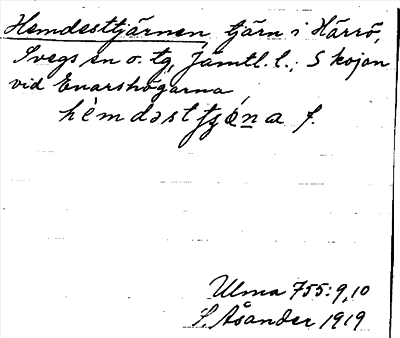 Hemdesttjärnen, tjärn i Härrö,
Svegs sn o. tg, Jämtl. l.; S kojan
vid Enarshögarna
hèmdəsttjǿna f.
Ulma 755:9,10
S. Åsander 1919